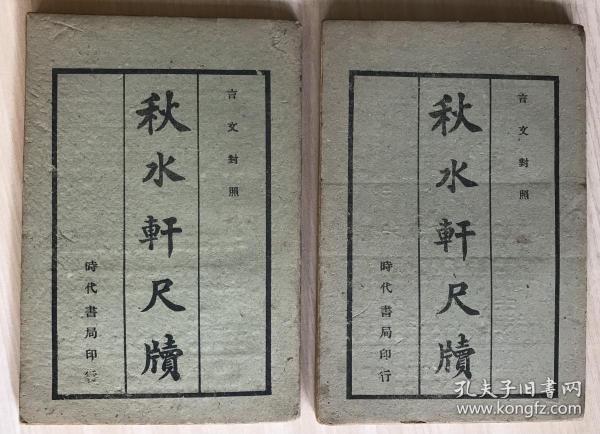 言文對照
秋水軒尺牘
時代書局印行
言文對照
秋水軒尺牘
時代書局印行
孔夫子旧书网
www.kongfz.com